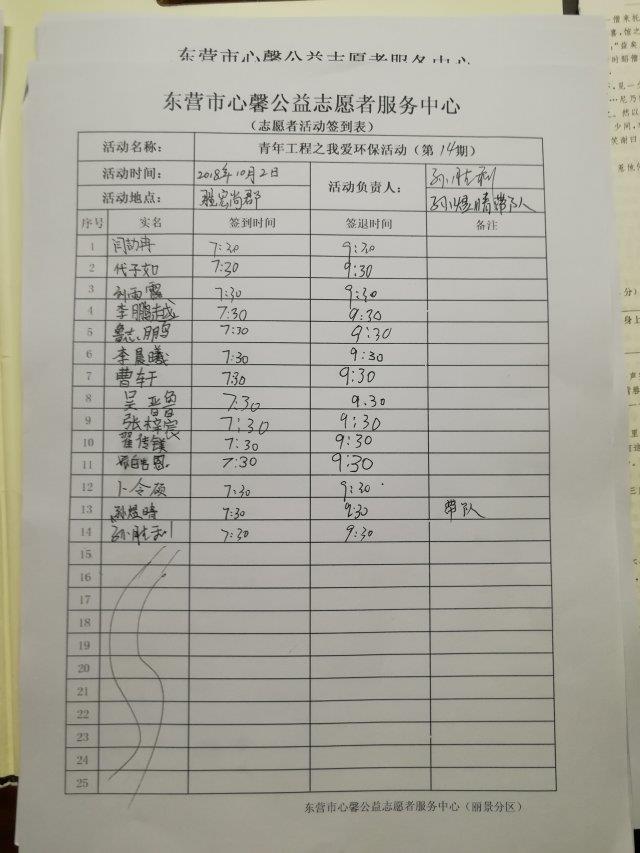 东营市心馨公益志愿者服务中心
东营市心馨公益志愿者服务中心
（志愿者活动签到表）
活动名称： 青年工程之我爱环保活动（第 14 期）
活动时间： 2018年10月2日 活动负责人： 孙胜利
活动地点： 尚郡 孙煜晴带队人
序号 实名 签到时间 签退时间 备注
1 7:30 9:30
2 代子如 7:30 9:30
3 刘雨霏 7:30 9:30
4 李鹏越 7:30 9:30
5 鲁志鹏 7:30 9:30
6 李晨曦 7:30 9:30
7 曹轩 7:30 9:30
8 吴 7:30 9.30
9 张梓宸 7:30 9:30
10 翟传 7:30 9:30
11 7:30 9:30
12 卜令硕 7:30 9:30
13 孙煜晴 7:30 9:30 带队
14 孙胜利 7:30 9:30
15
16
17
18
19
20
21
22
23
24
25
东营市心馨公益志愿者服务中心（丽景分区）